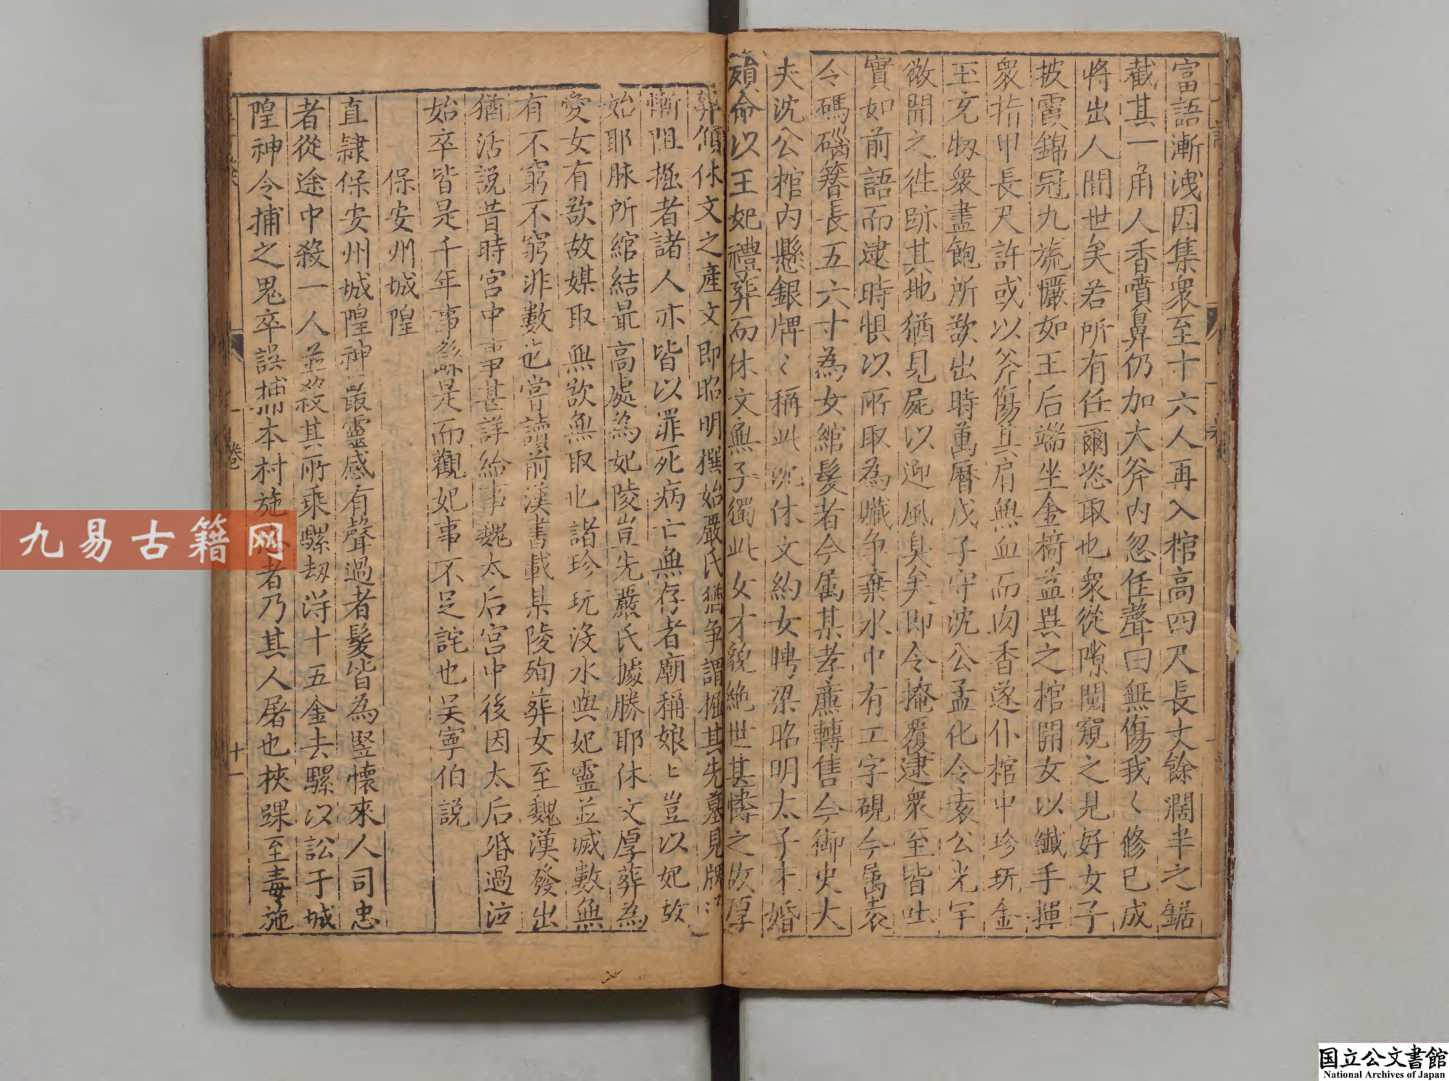 富語漸洩因集衆至十六人再入棺高四尺長丈餘濶半之鋸
截其一角人香噴鼻仍加大斧内忽任聲曰無傷我〻修已成
將出人間世矣若所有任爾恣取也衆從隙闚窺之見好女子
披霞錦冠九旒儼如王后端坐金椅益異之棺開女以纖手揮
衆指甲長尺許或以斧傷其肩無血而肉香遂仆棺中珍玩金
玉充牣衆盡飽所欲出時萬曆戊子守沈公孟化令袁公光宇
微聞之徃跡其地猶見屍以迎風臭矣即令掩覆逮衆至皆吐
實如前語而逮時懼以所取為贓争棄水中有工字硯今属袁
令碼碯簪長五六寸為女綰髮者今属某孝廉轉售今御史大
夫沈公棺内懸銀牌〻稱此沈休文約女聘梁昭明太子未婚
殞命以王妃禮葬而休文無子獨此女才貌絶世甚憐之故厚
葬傾休文之産文即昭明撰始嚴氏猶争謂掘其先墓見牌〻
慚阻掘者諸人亦皆以罪死病亡無存者廟稱娘〻豈以妃故
始耶脉所綰結最高處為妃陵豈先嚴氏據勝耶休文厚葬為
愛女有欲故媒取無欲無取也諸珍玩沒水與妃靈並滅數無
有不窮不窮非數也嘗讀前漢書載某陵殉葬女至魏漢發出
猶活説昔時宮中事甚詳給事魏太后宮中後因太后㛰過泣
始卒皆是千年事繇是而觀妃事不足詫也吴寧伯説
保安州城隍
直隷保安州城隍神最靈感有聲過者髮皆為竪懷來人司忠
者從途中殺一人並殺其所乘騾刼得十五金去騾以訟于城
隍神令捕之鬼卒誤捕本村施 者乃其人屠也梜踝至毒施
卷
十一
九易古籍网
国立公文書館
National Archives of Japan